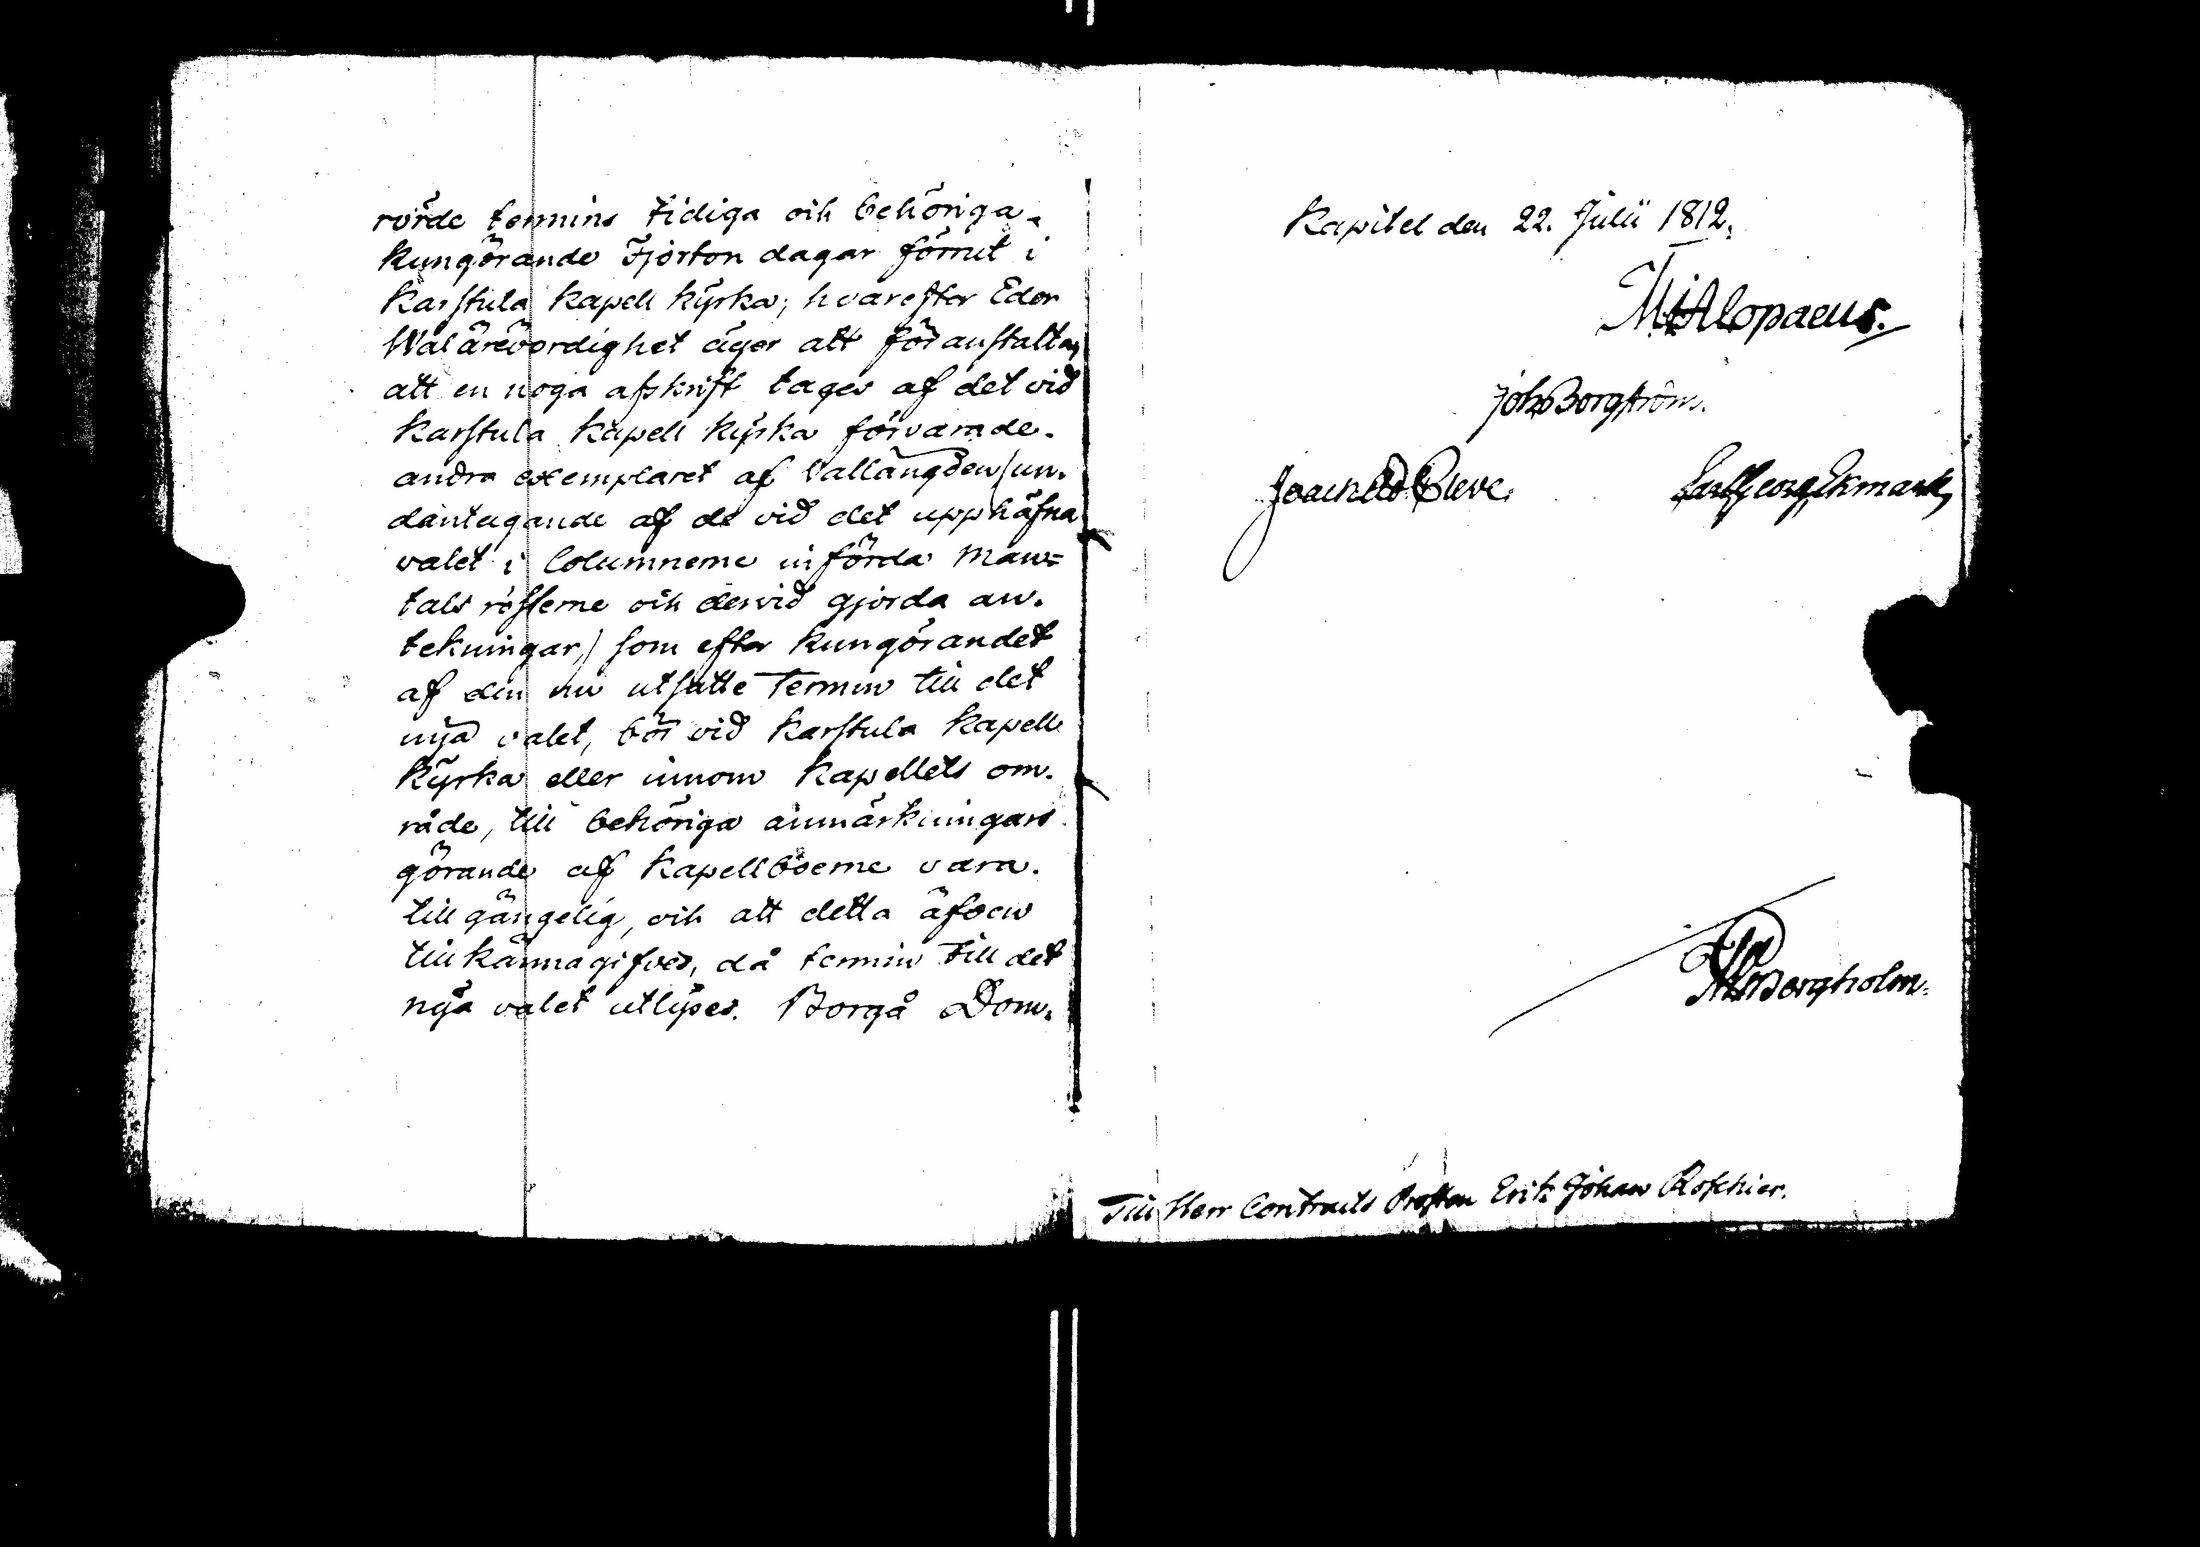 rörde termins tidiga och behöriga
kungörande Fjorton dagar förrut i
Karstula Kapell kÿrka; hvarefter Eder
Wälärevördighet äger att föranstalta,
att en noga afskrift tages af det vid
Karstula Kapell kÿrka förvarade
andra exemplaret af Vallängden /un-
dantagande af de vid det upphäfna
valet i Columnerne införda Man=
tals rösterne och dervid gjorda an-
tekningar,/ som efter kungörandet
af den nu utsatte Termin till det
nya valet, bör vid Karstula Kapell
kÿrka eller innom Kapellets om-
råde, till behöriga anmärkningars
görande af Kapellboerne vara
tillgängelig, och att detta äfven
tillkännagifves, då termin till det
nÿa valet utlÿses. Borgå Dom-
Kapitel den 22. Julii 1812.
M Alopaeus.
Joh Borgström.
Joach Cleve.
Carl Georg Ekmark,
Bergholm.
Till Herr Contracts Prosten Erik Johan Roschier.